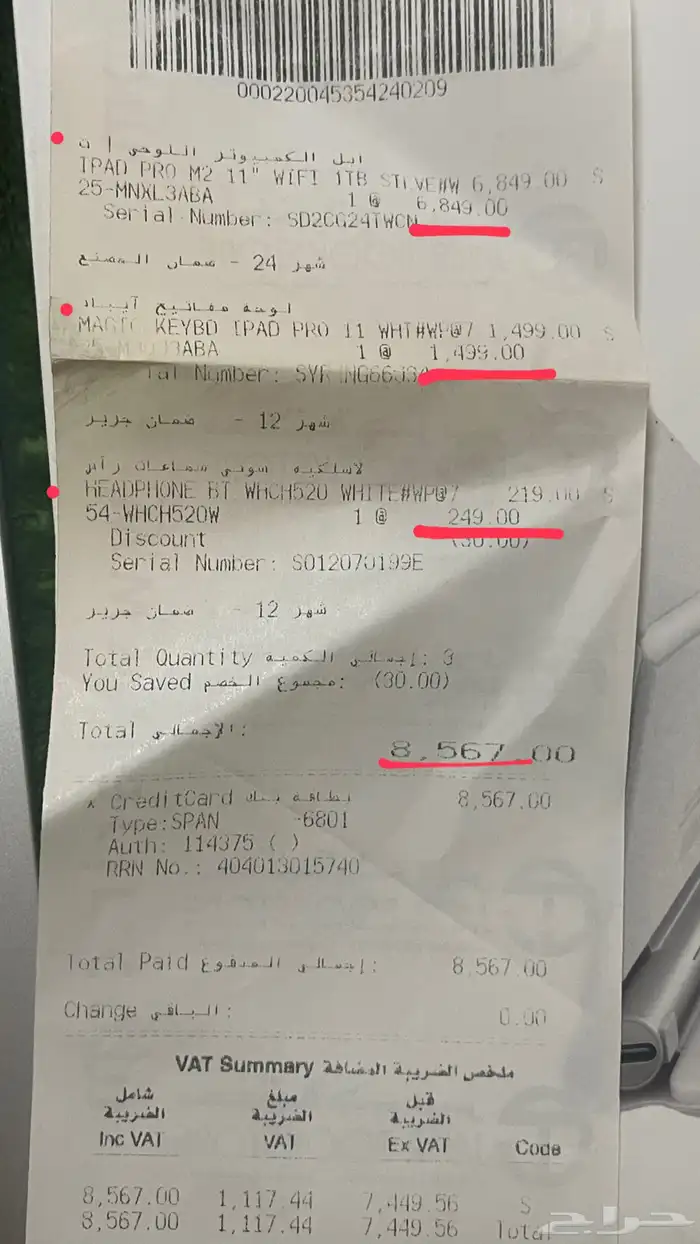 000220045354240209
ابل الكمبيوتر اللوحي | ت
IPAD PRO M2 11" WIFI 1TB 6,849.00 S
25-MNXL3ABA 1 @ 6,849.00
Serial Number: SD2CG24TWCN
شهر 24 - ضمان المصنع
لوحة مفاتيح آيباد
MAGIC KEYBD IPAD PRO 11 WHT#WP@7 1,499.00 S
1 @ 1,499.00
Number:
شهر 12 - ضمان جرير
لاسلكيه سوني سماعات رأس
HEADPHONE BT WHCH520 WHITE#WP@7 219.00 S
54-WHCH520W 1 @ 249.00
Discount (30.00)
Serial Number: S012070199E
شهر 12 - ضمان جرير
Total Quantity إجمالي الكمية: 3
You Saved مجموع الخصم: (30.00)
Total الإجمالي:
8,567.00
* CreditCard بطاقة بنك 8,567.00
Type:SPAN -6801
Auth: 114375 ( )
RRN No.: 404013015740
Total Paid إجمالي المدفوع: 8,567.00
Change الباقي: 0.00
VAT Summary ملخص الضريبة المضافة
شامل الضريبة مبلغ الضريبة قبل الضريبة
Inc VAT VAT Ex VAT Code
8,567.00 1,117.44 7,449.56 S
8,567.00 1,117.44 7,449.56 Total
حراج